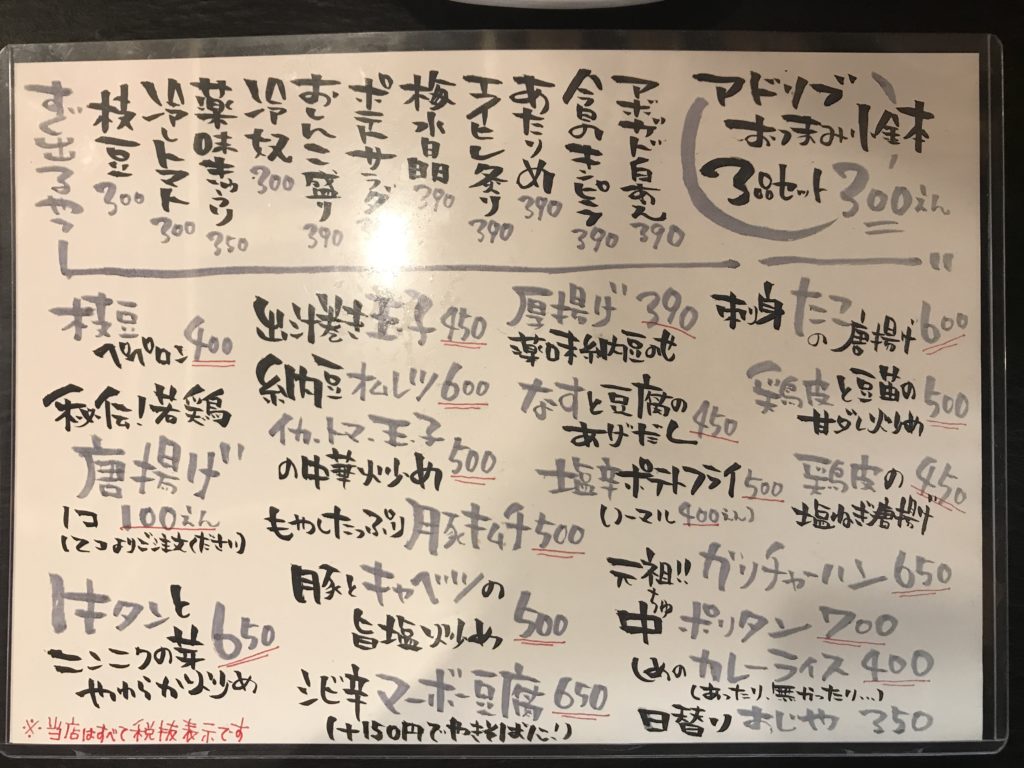 アドリブ
おつまみ小鉢
3品セット 300えん
アボガド白あえ 390
今日のキンピラ 390
あたりめ 390
エイヒレ炙り 390
梅水晶 390
ポテトサラダ
おしんこ盛り 390
冷奴 300
薬味キュウリ 350
冷しトマト 300
枝豆 300
すぐ出るやつ
刺身たこ
の唐揚げ 600
鶏皮と豆苗の
甘ダレ炒め 500
鶏皮の 450
塩ねぎ唐揚げ
厚揚げ 390
薬味納豆のせ
なすと豆腐の
あげだし 450
塩辛ポテトフライ 500
(ノーマル400えん)
元祖!!ガリチャーハン 650
ちゅ
中ポリタン 700
しめのカレーライス 400
(あったり、無かったり...)
日替りおじや 350
出汁巻き玉子 450
納豆オムレツ 600
イカ、トマ、玉子
の中華炒め 500
もやしたっぷり豚キムチ 500
豚とキャベツの
旨塩炒め 500
シビ辛マーボー豆腐 650
(+150円でやきそばに!)
枝豆
ペペロン 400
秘伝!若鶏
唐揚げ
1コ 100えん
(2コよりご注文ください)
トキタンと
ニンニクの芽
やわらか炒め 650
※当店はすべて税抜表示です